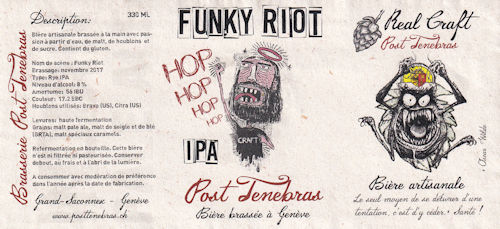 Brasserie Post Tenebras
Description:
330 ML
Bière artisanale brassée à la main avec pas-
sion à partir d'eau, de malt, de houblons et
de sucre. Contient du gluten.
Nom de scène : Funky Riot
Brassage: novembre 2017
Type: Rye IPA
Niveau d'alcool: 8 %
Amertume: 56 IBU
Couleur: 17.2 EBC
Houblons utilisés: Bravo (US), Citra (US)
Levures: haute fermentation
Grains: malt pale ale, malt de seigle et de blé
malt spéciaux caramels.
Refermentation en bouteille. Cette bière
n'est ni filtrée ni pasteurisée. Conserver
debout, au frais et à l'abri de la lumière.
A consommer avec modération de préférence
dans l'année après la date de fabrication.
Grand-Saconnex - Genève
www.posttenebras.ch
FUNKY RIOT
HOP
HOP
HOP
HOP
CRAFT
IPA
Post Tenebras
Bière brassée à Genève
Real Craft
Post Tenebras
Bière artisanale
Le seul moyen de se délivrer d'une
tentation, c'est d'y céder. Santé !